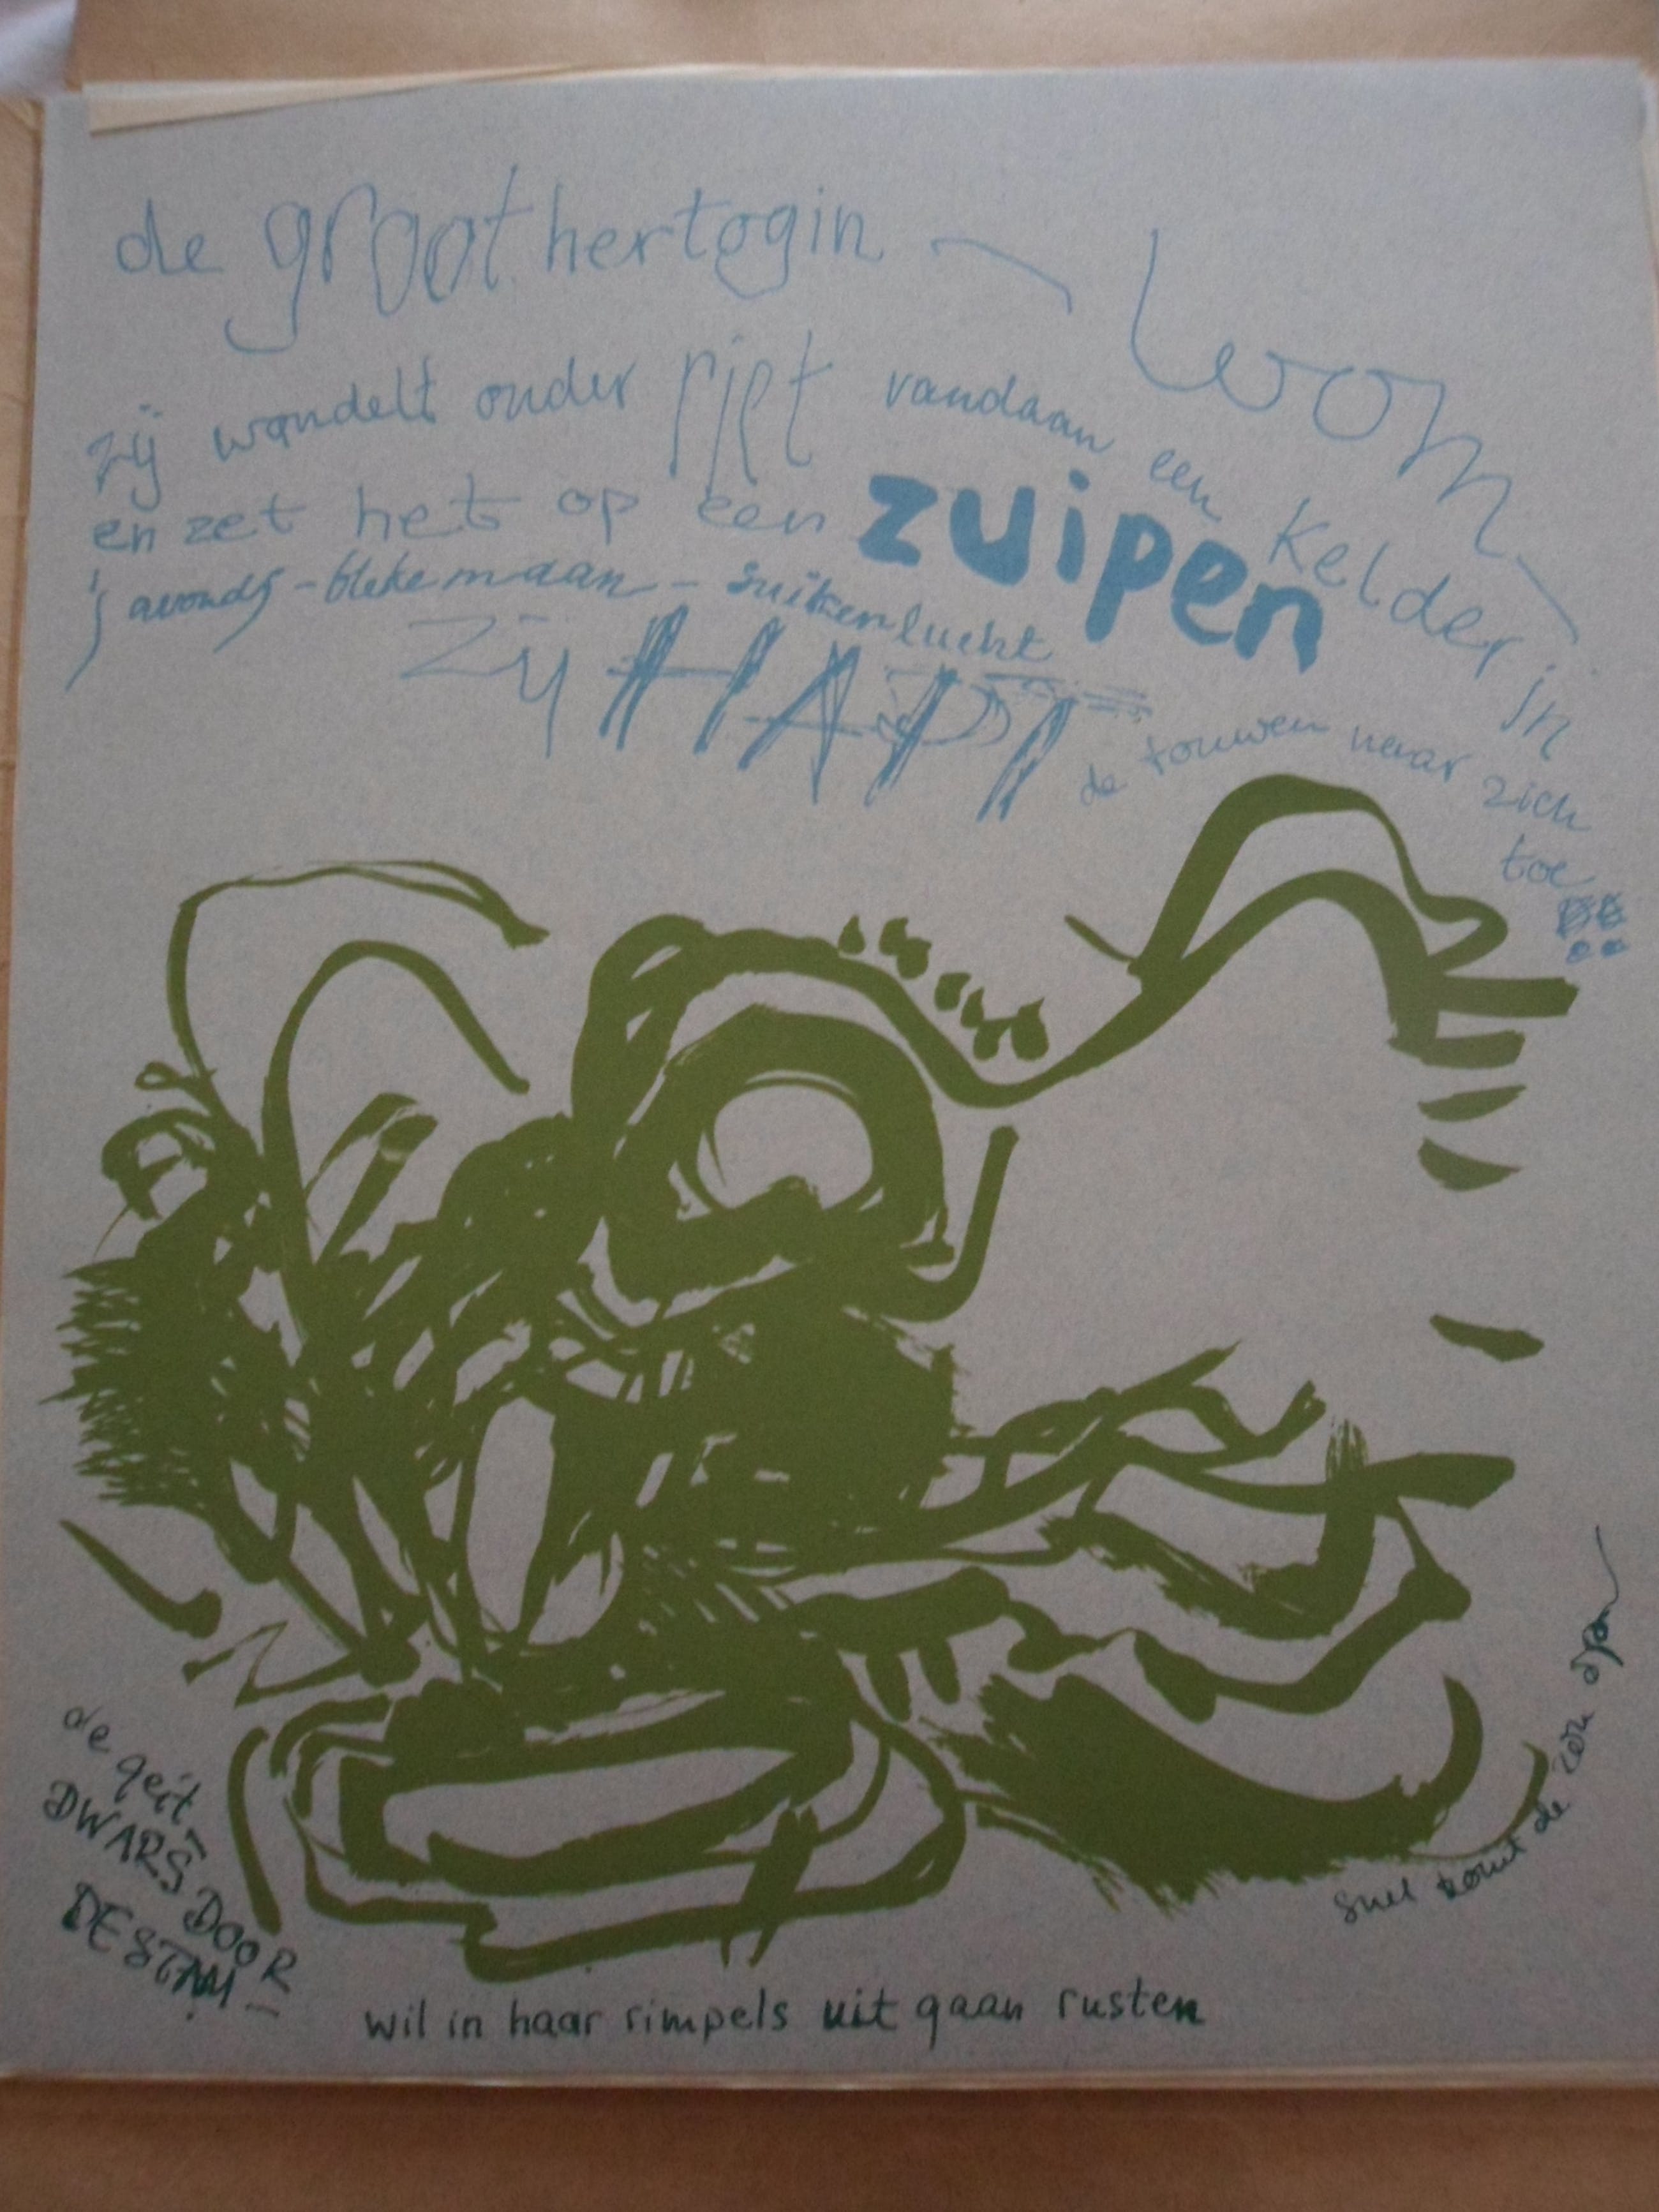 de groothertogin – won –
zij wandelt onder riet vandaan een kelder in
en zet het op een zuipen
's avonds – bleke maan – suikerlucht
zij HAPT de touwen naar zich
toe !!
de geit –
DWARS DOOR
DE STAM –
wil in haar rimpels uit gaan rusten
snel komt de zon